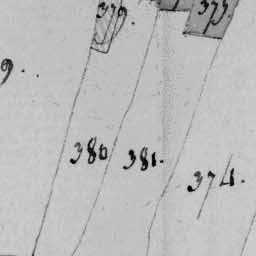 379.
375
9..
380
381.
374.